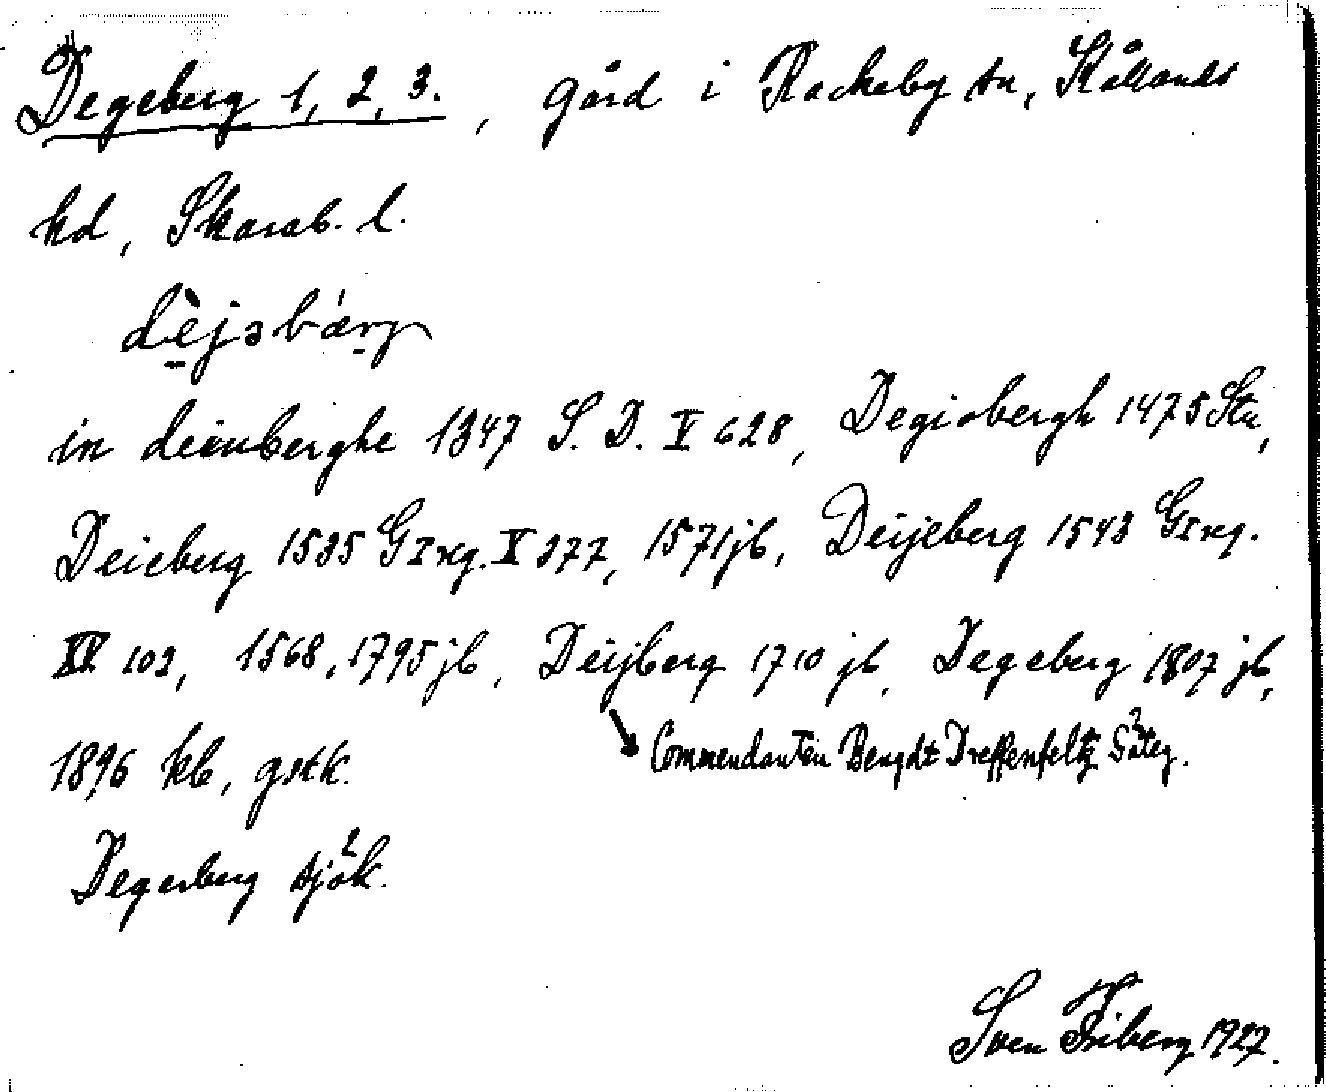 Degeberg 1, 2, 3., gård i Rackeby sn, Kållands
hd, Skarab. l.
in deienberghe 1347 S. D. V 628, Degiobergh 1475 Stu,
Deieberg 1535 GIrg. X 377, 1571 jb, Deijeberg 1543 GIrg.
XV 102, 1568, 1795 jb, Deijberg 1710 jb, Degeberg 1807 jb,
Commendanten Benght Dreffenfeltz Säteg.
1896 kb, gstk.
Degerberg sjök.
Sven Friberg 1927.